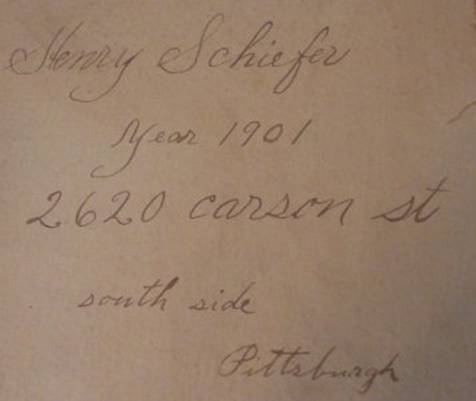 Henry Schiefer
Year 1901
2620 carson st
south side
Pittsburgh